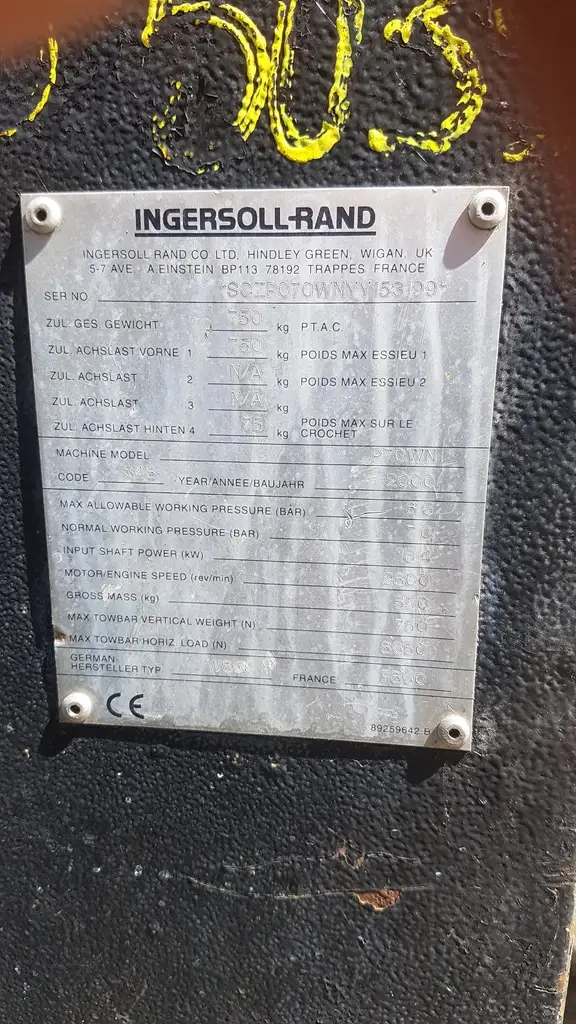 503
INGERSOLL-RAND
INGERSOLL RAND CO. LTD. HINDLEY GREEN, WIGAN, UK
5-7 AVE A.EINSTEIN BP113 78192 TRAPPES FRANCE
SER NO.
ZUL. GES. GEWICHT 750 kg P.T.A.C.
ZUL. ACHSLAST VORNE 1 750 kg POIDS MAX ESSIEU 1
ZUL. ACHSLAST 2 N/A kg POIDS MAX ESSIEU 2
ZUL. ACHSLAST 3 N/A kg
ZUL. ACHSLAST HINTEN 4 75 kg POIDS MAX SUR LE CROCHET
MACHINE MODEL P70WN
CODE YEAR/ANNEE/BAUJAHR 2000
MAX ALLOWABLE WORKING PRESSURE (BAR)
NORMAL WORKING PRESSURE (BAR)
INPUT SHAFT POWER (kW)
MOTOR/ENGINE SPEED (rev/min)
GROSS MASS (kg)
MAX TOWBAR VERTICAL WEIGHT (N) 750
MAX TOWBAR HORIZ. LOAD (N)
GERMAN
HERSTELLER TYP FRANCE
CE
89259642 B